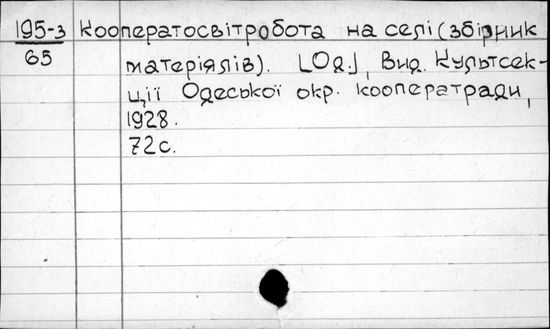 195-з Кооператосвітробота на селі (збірник
65 матеріялів). [Од.], Вид. Культсек-
ції Одеської окр. кооператради,
1928.
72с.